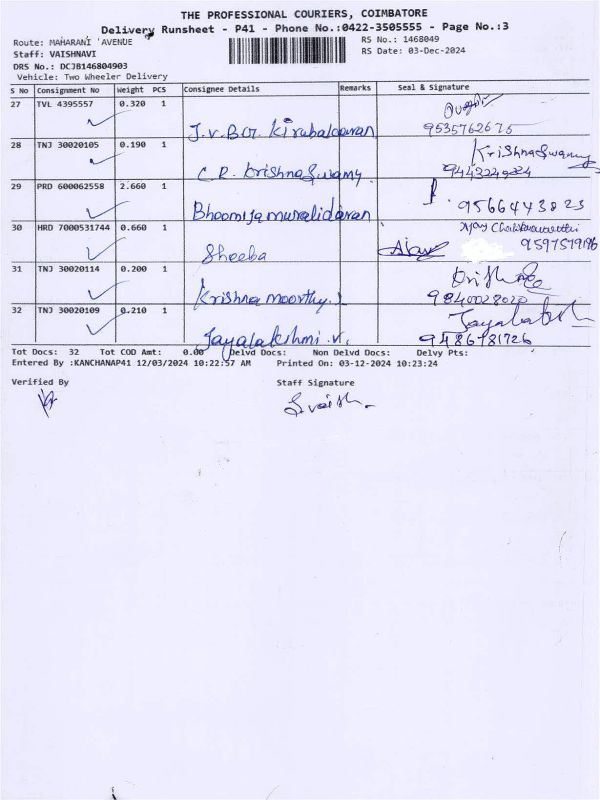 THE PROFESSIONAL COURIERS, COIMBATORE
Delivery Runsheet - P41 - Phone No.:0422-3505555 - Page No.:3
Route: MAHARANI AVENUE
RS No.: 1468049
Staff: VAISHNAVI
RS Date: 03-Dec-2024
DRS No.: DCJB146804903
Vehicle: Two Wheeler Delivery
S No Consignment No Weight PCS Consignee Details Remarks Seal & Signature
27 TVL 4395557 0.320 1
J.V.B.G. Kirubakaran 9535762675
28 TNJ 30020105 0.190 1 KrishnaSwamy
C.R. KrishnaSwamy
29 PRD 600062558 2.660 1
Bhoomija muralidaran 9566443823
30 HRD 7000531744 0.660 1 Ajay
Sheeba Ajay 9597579196
31 TNJ 30020114 0.200 1
Krishna moorthy. 9840028020
32 TNJ 30020109 0.210 1
Jayalakshmi.V. 9486781726
Tot Docs: 32 Tot COD Amt: 0.00 Delvd Docs: Non Delvd Docs: Delvy Pts:
Entered By :KANCHANAP41 12/03/2024 10:22:57 AM Printed On: 03-12-2024 10:23:24
Verified By Staff Signature